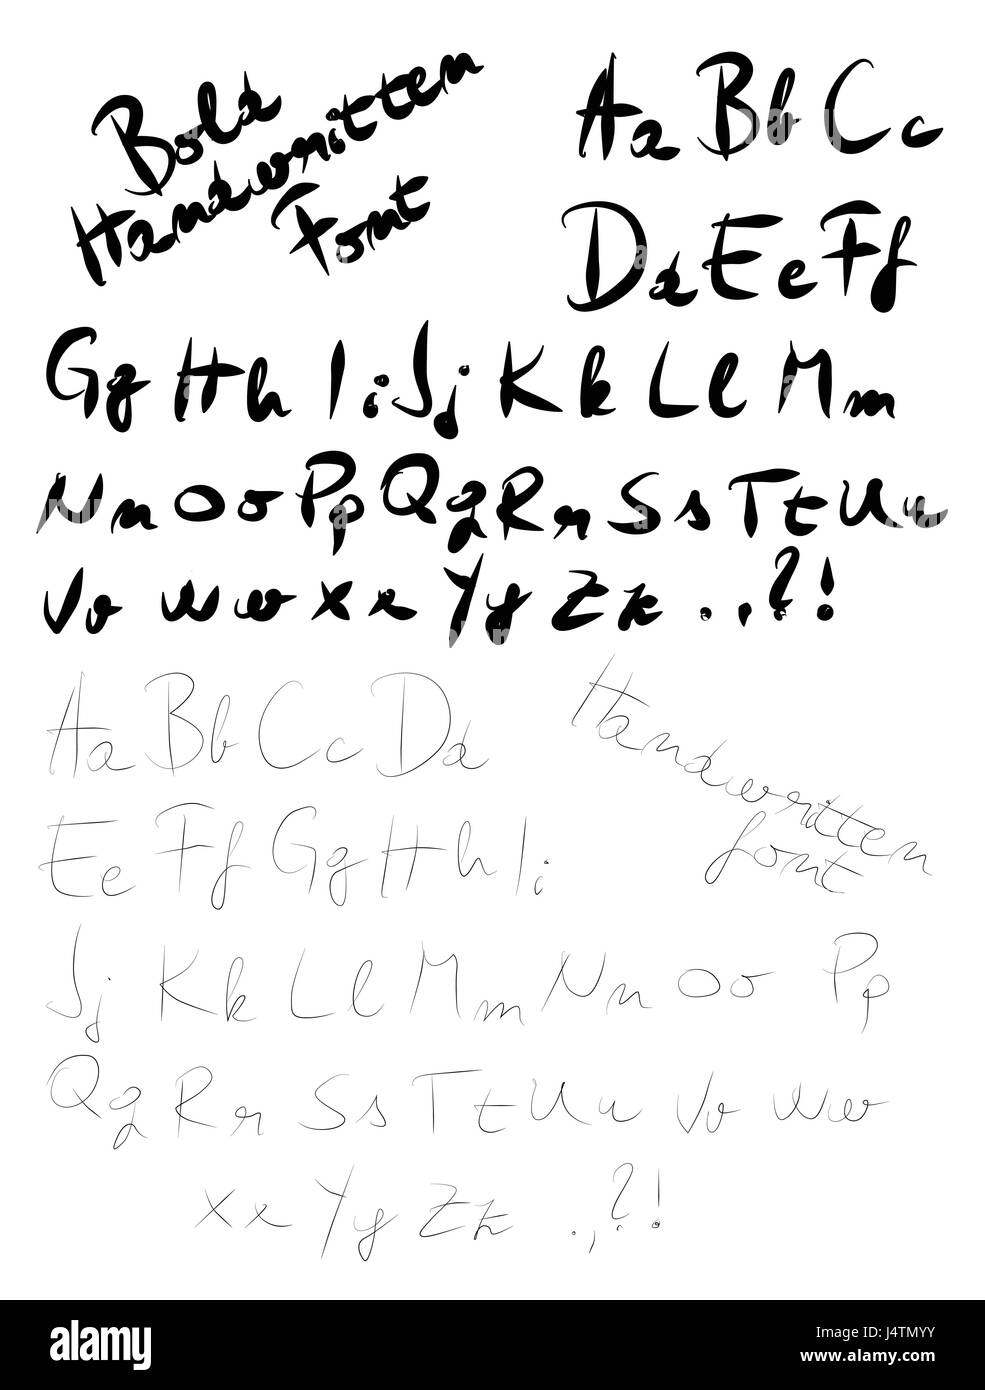 Bold
Handwritten
Font
Aa Bb Cc
Dd Ee Ff
Gg Hh Ii Jj Kk Ll Mm
Nn Oo Pp Qq Rr Ss Tt Uu
Vv Ww Xx Yy Zz . , ? !
Aa Bb Cc Dd
Handwritten
font
Ee Ff Gg Hh Ii
Jj Kk Ll Mm Nn Oo Pp
Qq Rr Ss Tt Uu Vv Ww
Xx Yy Zz . , ? !
alamy
Image ID: J4TMYY
www.alamy.com